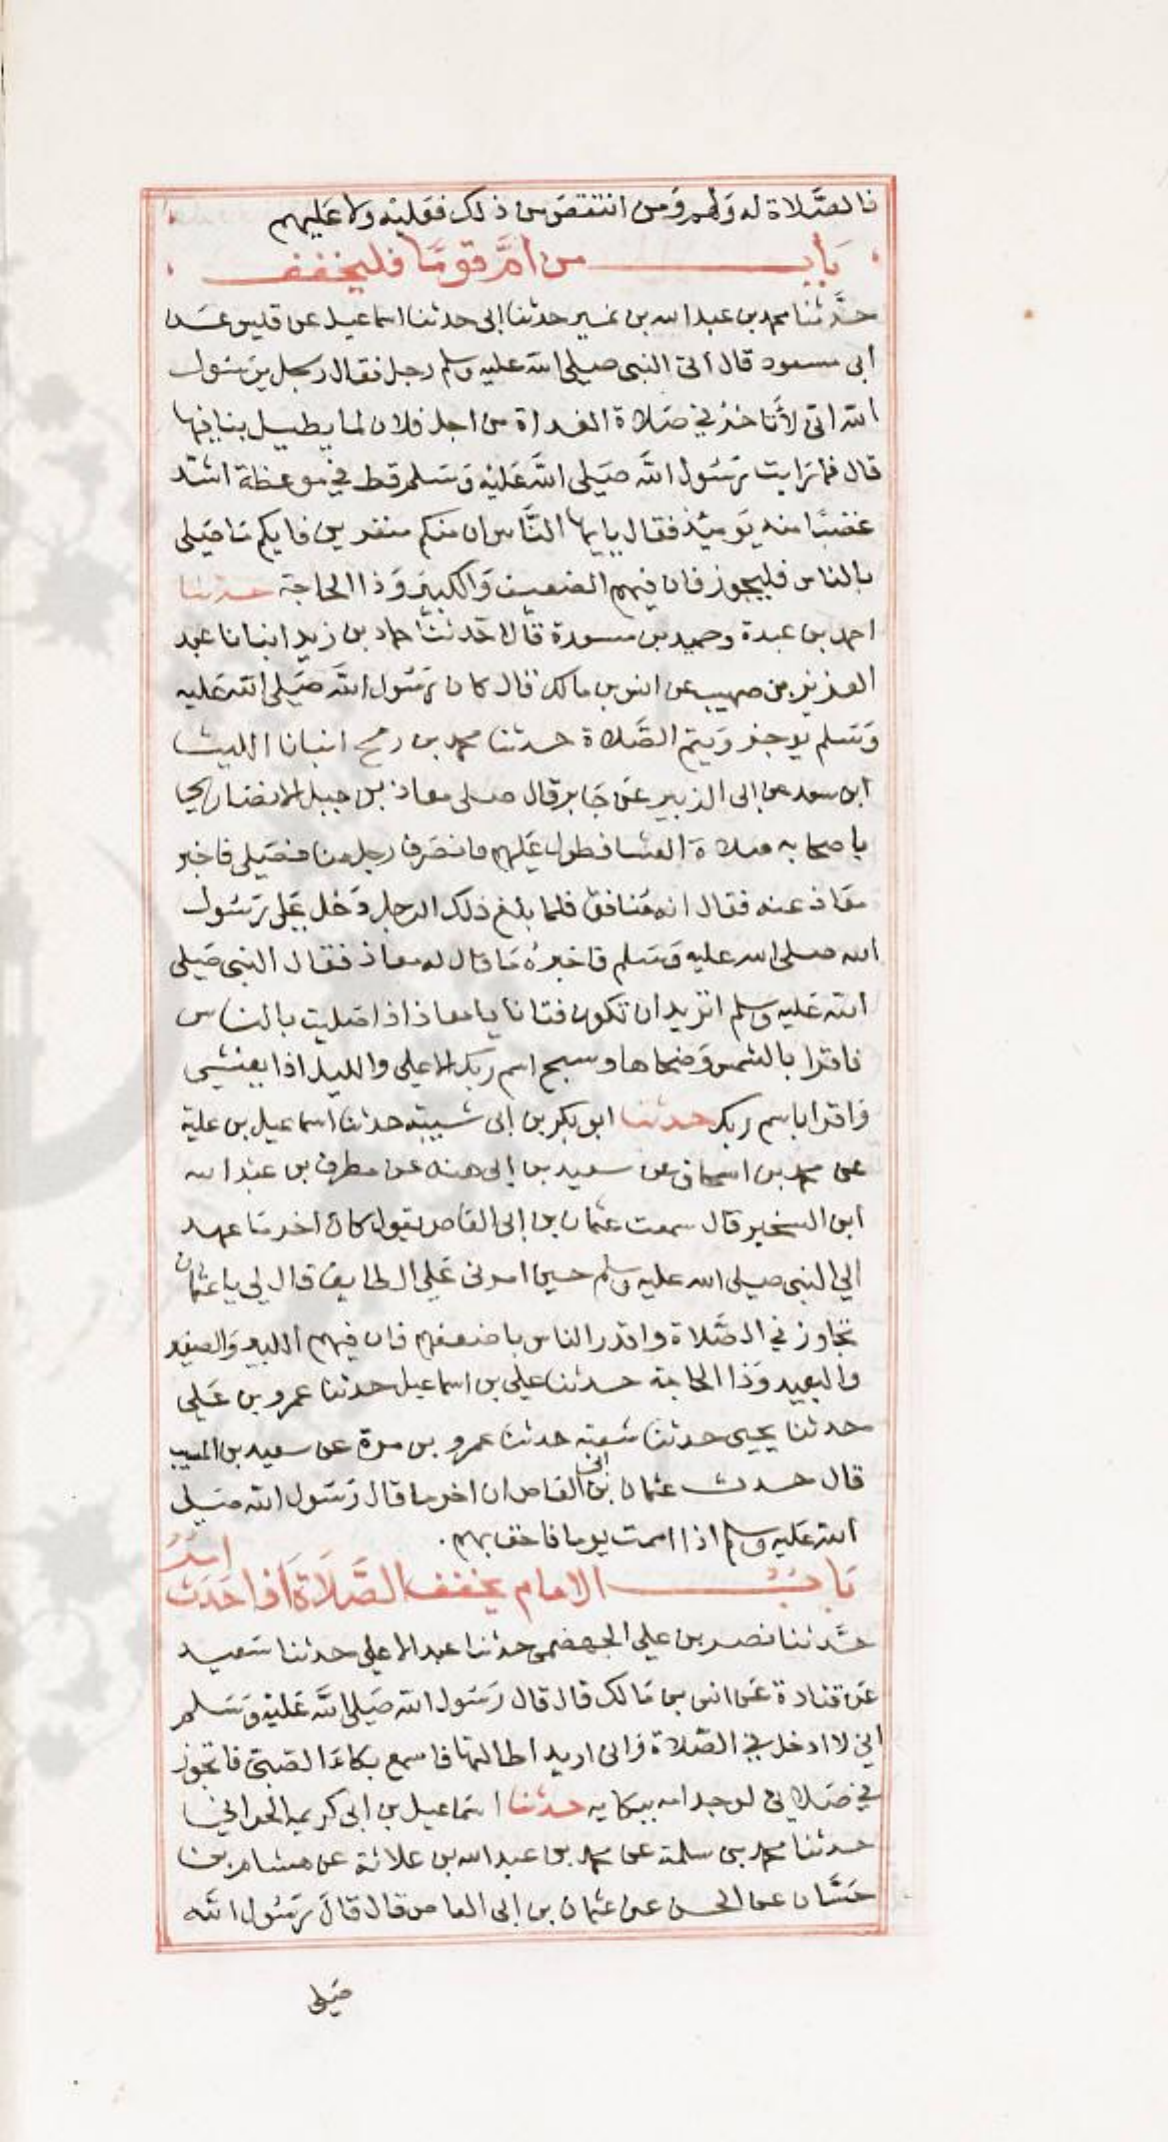 فالصَّلاة له وَلهم وَمن انتقصَ من ذلك فعَليْه ولا عَليهم
بَابـــ من أمَّ قومًا فليخفف
حدَّثنا محمد بن عبد الله بن نمير حدثنا ابى حدثنا اسماعيل عن قيس عن
أبى مسعود قال اتى النبى صلى الله عليه وسلم رجل فقال رجل يرَسُول
الله انى لأتاخرُ في صَلاة الغداة من اجل فلان لما يطيل بنا فيها
قال فما رَايت رَسُول الله صَلى اللهَ عَليْه وَسَلم قط في موعظة اشد
غضبًا منه يَوميْذ فقال يا يها النَّاس ان منكم منفرين فايكم مَا صَلى
بالناس فليجوز فان فيهم الضعيف وَالكبيَر وَذا الحاجة حدثنا
احمد بن عبدة وحميد بن مسعدة قالا حَدثنَا حماد بن زيد انبانا عبد
العزيز بن صهيب عن انس بن مالك قال كان رَسُول اللهَ صَلى اللهَ عَليه
وَسَلم يوجز وَيتم الصَّلاة حدثنا محمد بن رمح انبانا الليث
ابن سعد عن ابى الزبير عَن جَابر قال صلى معاذ بن جبل الانصَارى
باصحابه صلاة العشا فطول عَليهم فانصَرف رجل منا فصَلى فاخبر
معَاذ عنه فقال انه مُنافق فلما بلغ ذلك الرجل دَخل عَلى رَسُول
الله صلى الله عليه وَسَلم فاخبرُه مَا قال له معاذ فقال النبى صَلى
الله عَليه وسلم اتريد ان تكون فتانا يا معاذ اذا صَليت بالناس
فاقرا بالشمس وَضحاها وسبح اسم رَبك الاعلى والليل اذا يغشى
وَاقرا باسم ربك حدثنا ابو بكر بن ابى شَيبة حدثنا اسماعيل بن علية
عن محمد بن اسحاق عن سعيد بن ابى هند عن مطرف بن عبد الله
ابن الشخير قال سمعت عثمان بن ابى العَاص يقول كان أخر مَا عهد
الى النبى صلى الله عليه وسلم حين امرنى عَلى الطايف قال لى يا عثمان
تجاوز في الصَّلاة واقدر الناس باضعفهم فان فيهم الكبير وَالصغير
والبعيد وَذا الحاجة حدثنا على بن اسماعيل حدثنا عمرو بن عَلى
حدثنا يحيى حدثنا شعبة حدثنا عمرو بن مرة عن سعيد بن المسيب
قال حدث عثمان بن ابى العَاص ان اخر ما قال رَسُول الله صَلى
الله عَليه وسلم اذا اممت يوما فاخف بهم.
بَابُـــ الامام يخفف الصَّلاَة اذا حَدَث امرُ
حدَّثنا نصر بن على الجهضمى حدثنا عبد الاعلى حدثنا سَعيد
عَن قتادة عَن انس بن مَالك قال قال رَسُول الله صَلى اللهَ عَليْه وَسَلم
انى لا ادخل في الصَّلاة وَانى اريد اطالتها فاسمع بكاءَ الصَبىّ فاتجوز
في صَلاتى لوجد امه ببكايه حدثنا اسَماعيل بن ابى كريمة الحرانى
حدثنا محمد بن سلمة عن محمد بن عبد الله بن علاثة عن هشام بن
حَسَّان عن الحسن عن عثمان بن ابى العاص قال قال رَسُول الله
صَلى